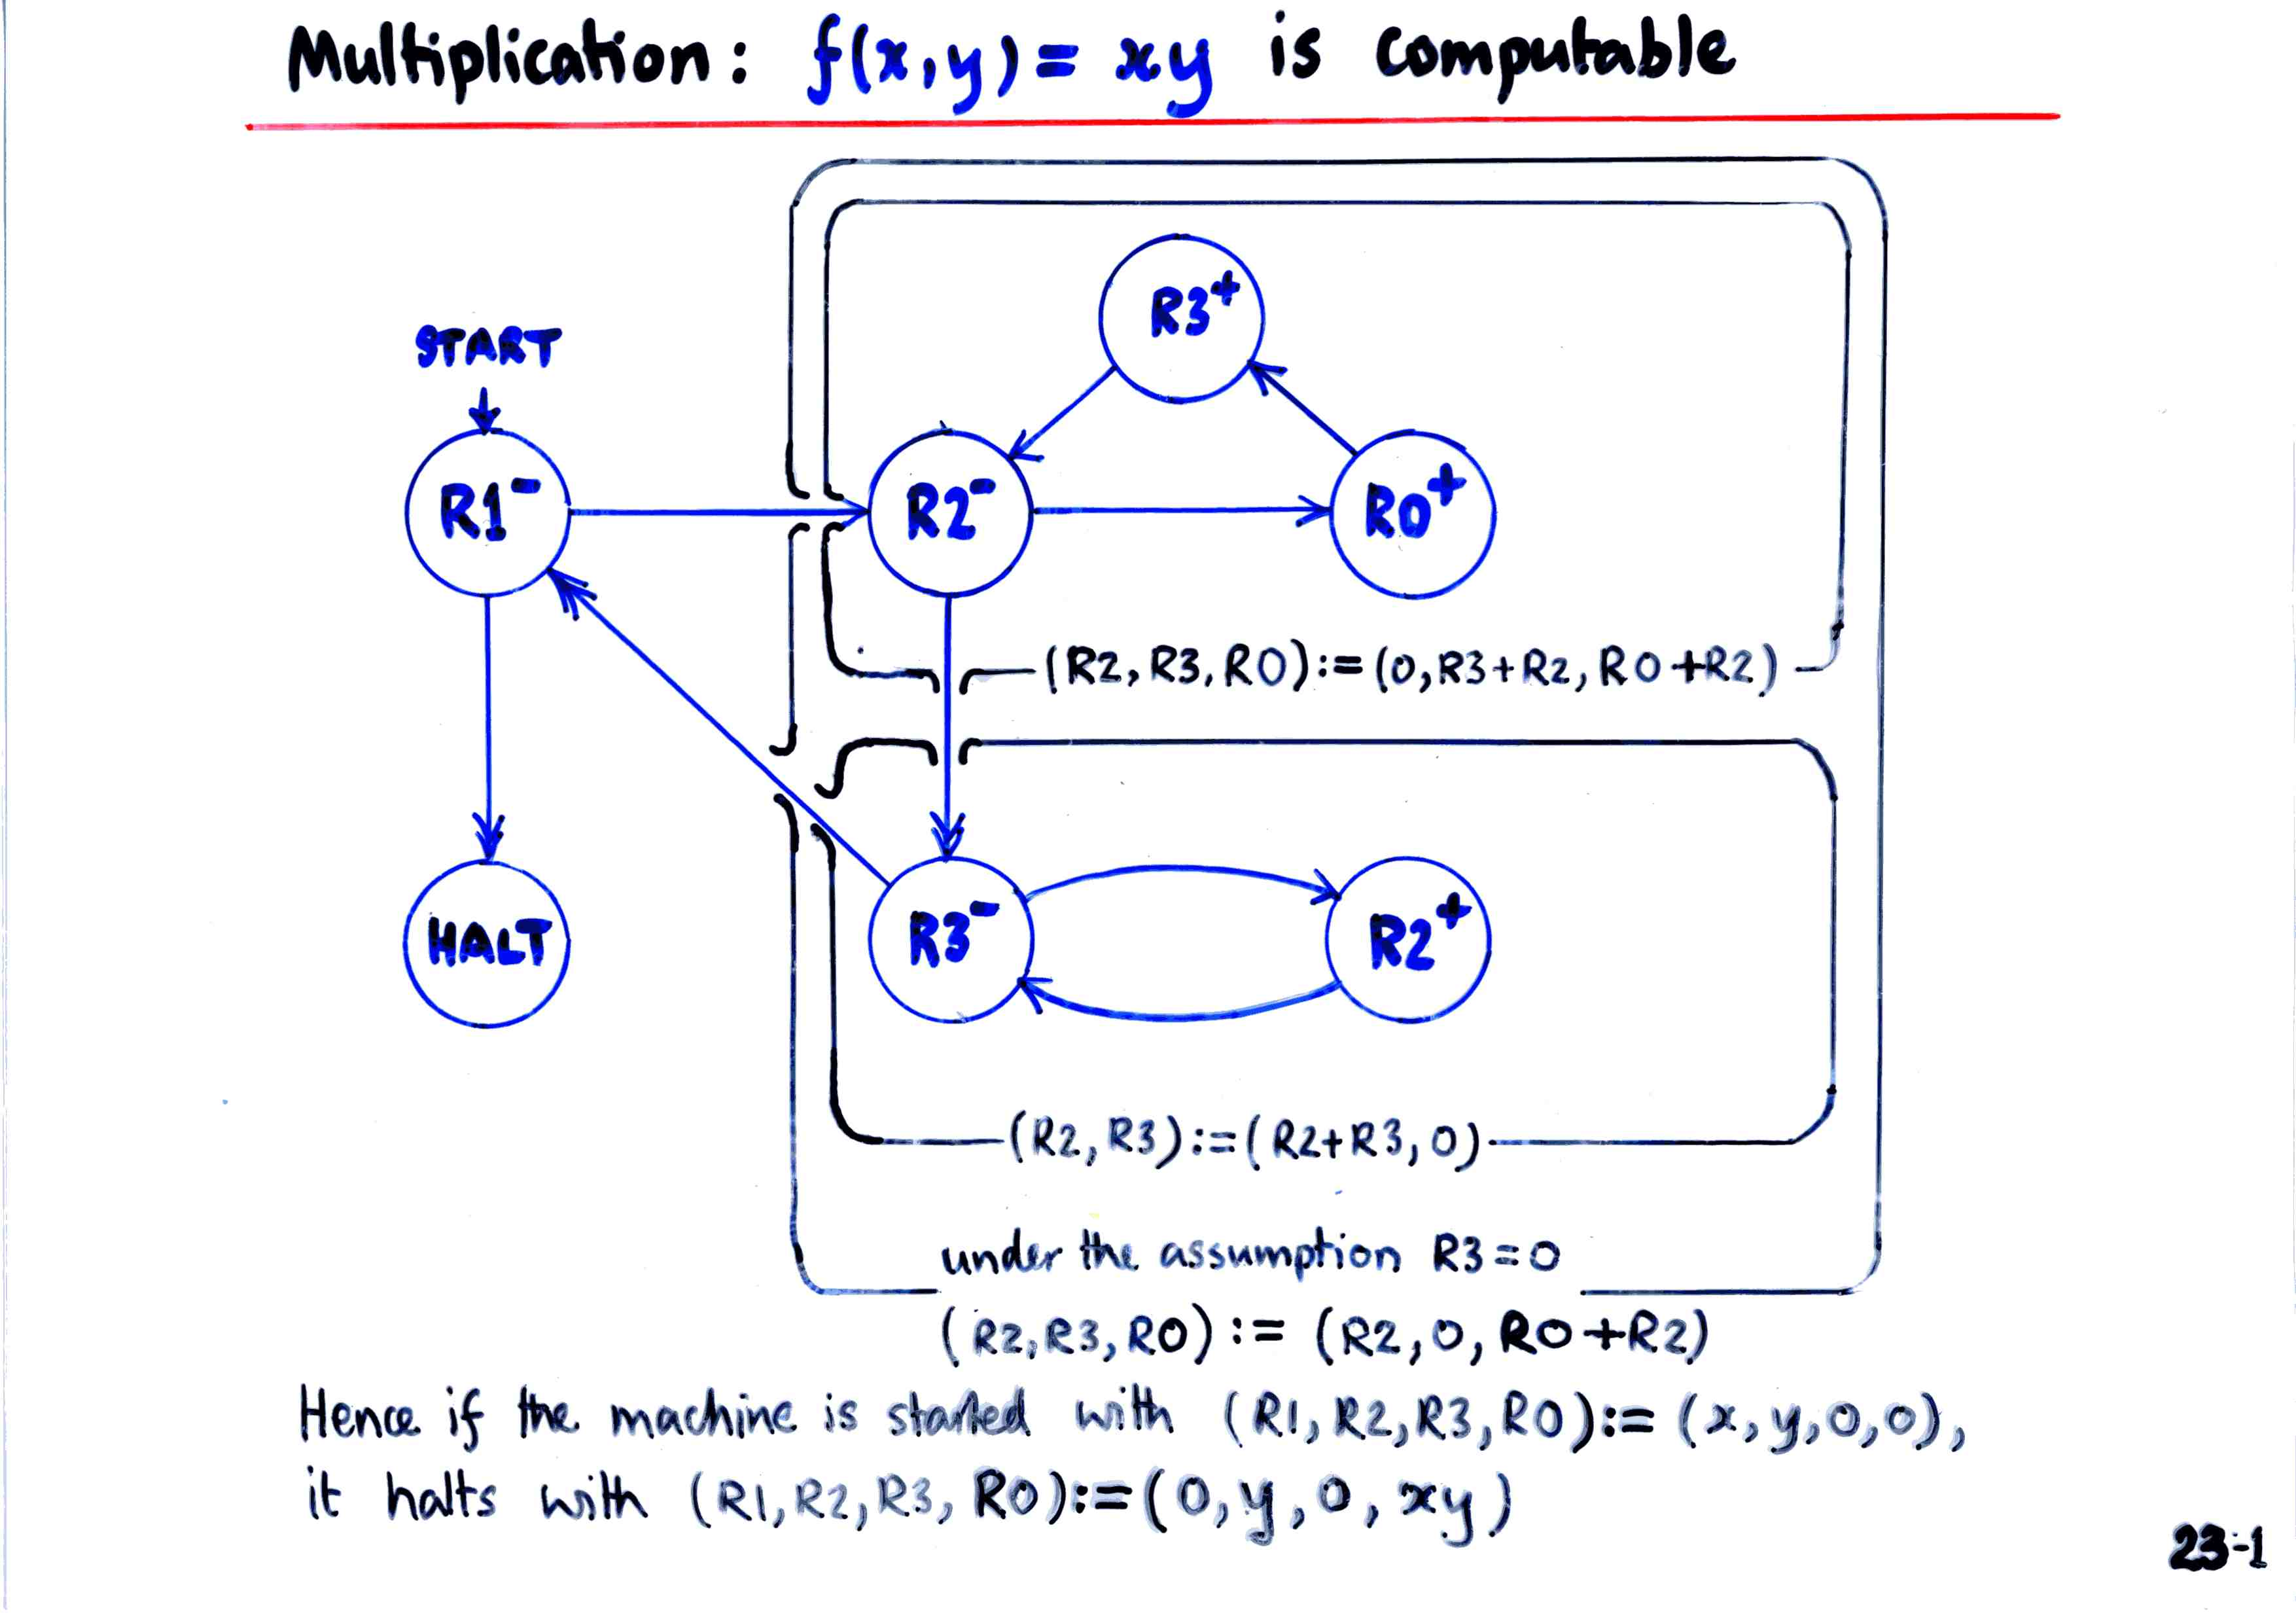 Multiplication: f(x,y) = xy is computable
START
R3⁺
R1⁻
R2⁻
R0⁺
(R2, R3, R0):=(0, R3+R2, R0+R2)
HALT
R3⁻
R2⁺
(R2, R3):=(R2+R3, 0)
under the assumption R3=0
(R2, R3, R0) := (R2, 0, R0+R2)
Hence if the machine is started with (R1, R2, R3, R0):= (x, y, 0, 0),
it halts with (R1, R2, R3, R0):=(0, y, 0, xy)
23-1